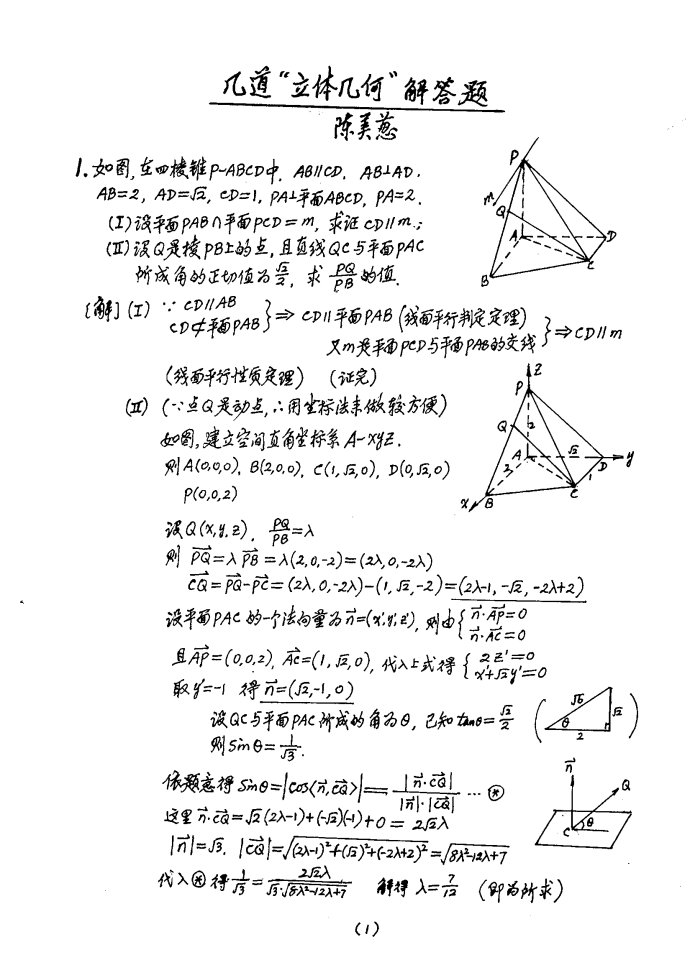 几道“立体几何”解答题
陈美慈
1. 如图, 在四棱锥P-ABCD中, AB∥CD, AB⊥AD,
AB=2, AD=√2, CD=1, PA⊥平面ABCD, PA=2.
(Ⅰ) 设平面PAB∩平面PCD=m, 求证CD∥m;
(Ⅱ) 设Q是棱PB上的点, 且直线QC与平面PAC
所成角的正切值为√2/2, 求 PQ/PB 的值.
P
m
Q
A
D
B
C
[解] (Ⅰ) ∵ CD∥AB
CD⊄平面PAB } ⇒ CD∥平面PAB (线面平行判定定理)
又m是平面PCD与平面PAB的交线 } ⇒ CD∥m
(线面平行性质定理) (证完)
(Ⅱ) (∵点Q是动点, ∴用坐标法来做较方便)
如图, 建立空间直角坐标系 A-xyz.
则A(0,0,0), B(2,0,0), C(1,√2,0), D(0,√2,0)
P(0,0,2)
z
P
Q
2
A
√2
D
y
2
1
x
B
C
设Q(x,y,z), PQ/PB=λ
则 PQ=λPB=λ(2,0,-2)=(2λ,0,-2λ)
CQ=PQ-PC=(2λ,0,-2λ)-(1,√2,-2)=(2λ-1,-√2,-2λ+2)
设平面PAC的一个法向量为n=(x',y',z'), 则由{ n·AP=0
n·AC=0
且AP=(0,0,2), AC=(1,√2,0), 代入上式得{ 2z'=0
x'+√2y'=0
取y'=-1 得n=(√2,-1,0)
设QC与平面PAC所成的角为θ, 已知tanθ=√2/2
( √6 √2 θ 2 )
则sinθ=1/√3.
依题意得 sinθ=|cos⟨n,CQ⟩|=|n·CQ|/(|n|·|CQ|) … ⊛
n
Q
C
θ
这里 n·CQ=√2(2λ-1)+(-√2)(-1)+0=2√2λ
|n|=√3, |CQ|=√((2λ-1)²+(√2)²+(-2λ+2)²)=√(8λ²-12λ+7)
代入⊛得 1/√3=2√2λ/(√3·√(8λ²-12λ+7)) 解得 λ=7/12 (即为所求)
(1)